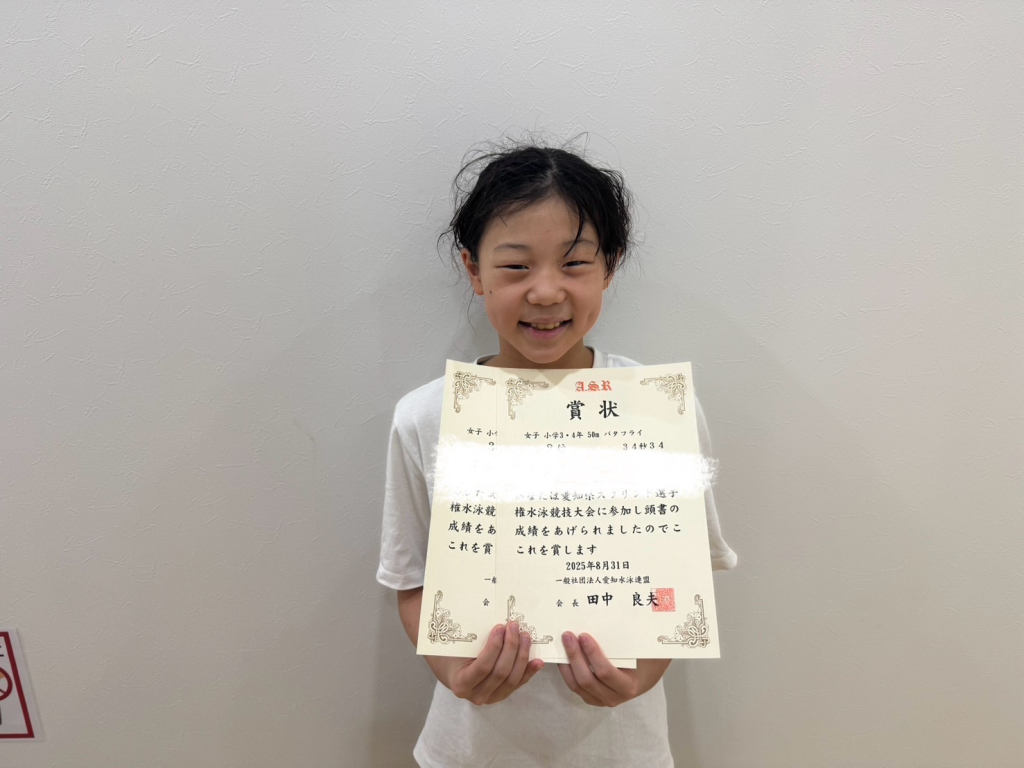 A.S.R
賞状
女子 小学3・4年 50m バタフライ
34秒34
あなたは愛知県スプリント選手
権水泳競技大会に参加し頭書の
成績をあげられましたのでこ
これを賞します
2025年8月31日
一般社団法人愛知水泳連盟
会長 田中 良夫
女子 小学
権水泳競
成績をあ
これを賞
一般
会